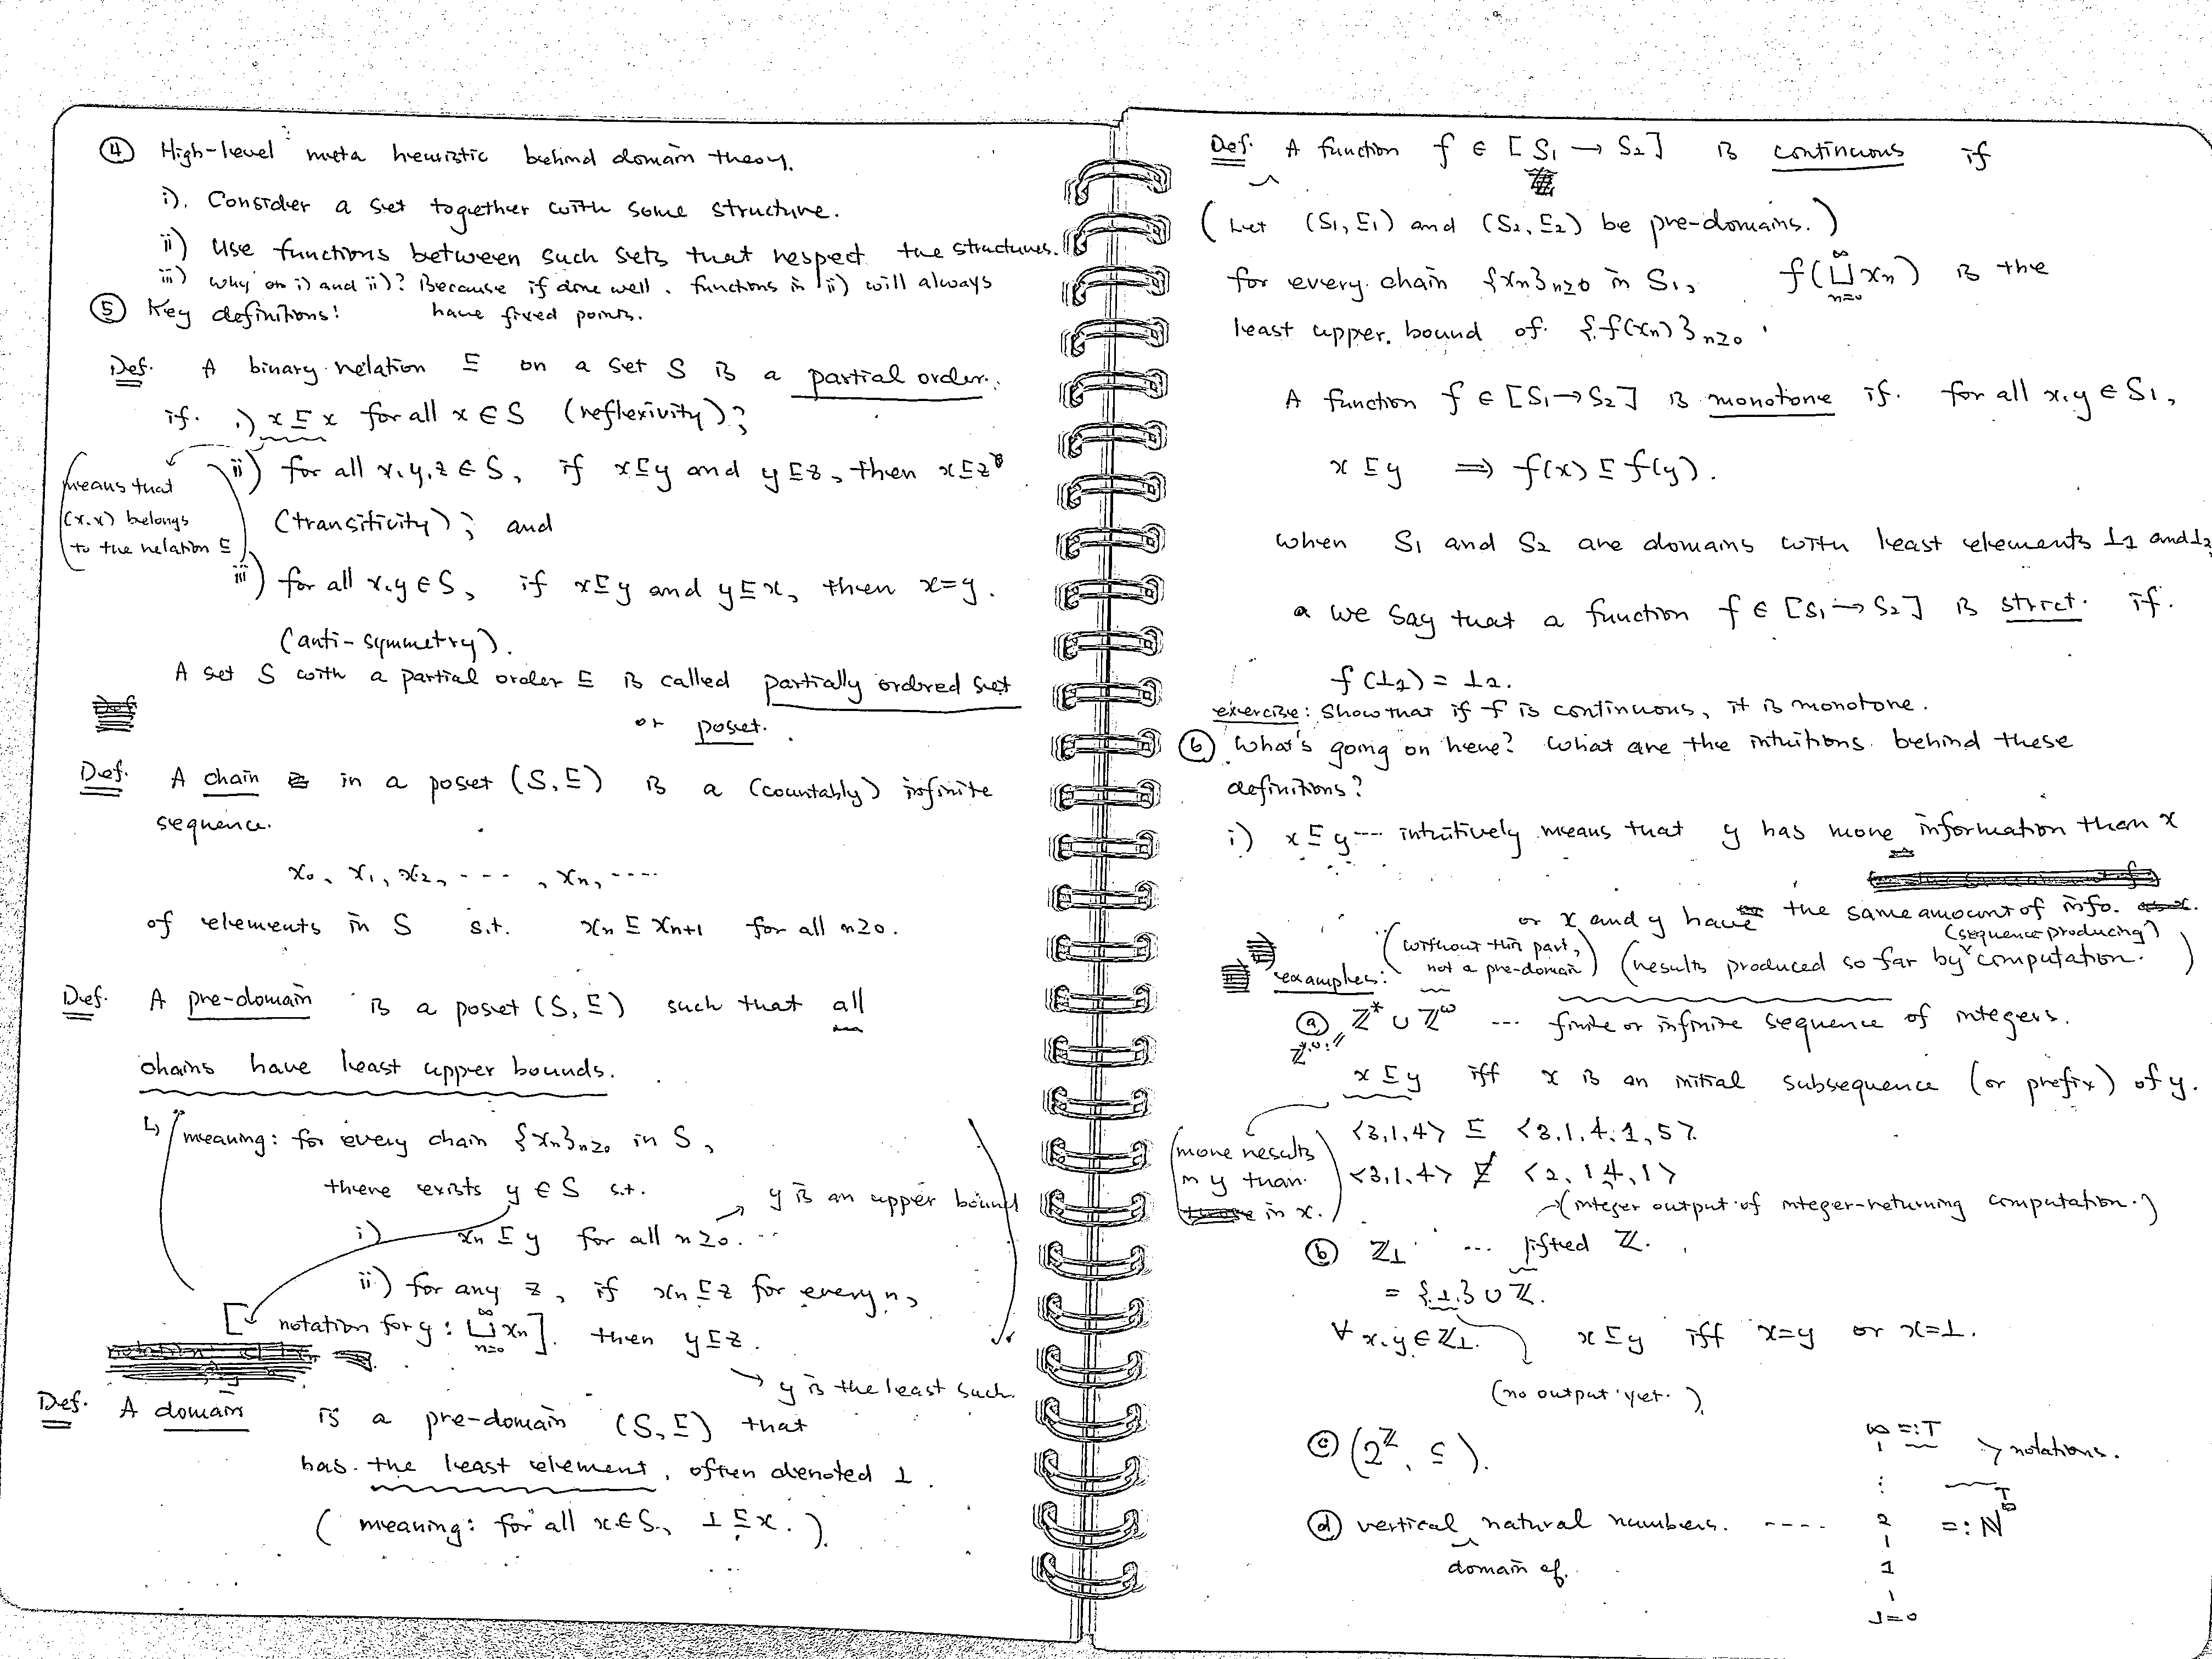 ④ High-level meta heuristic behind domain theory.
i). Consider a set together with some structure.
ii) Use functions between such sets that respect the structures.
iii) why on i) and ii)? Because if done well, functions in ii) will always
have fixed points.
⑤ Key definitions!
Def. A binary relation ⊑ on a set S is a partial order.
if. i) x ⊑ x for all x ∈ S (reflexivity);
(means that
(x,x) belongs
to the relation ⊑)
ii) for all x,y,z ∈ S, if x⊑y and y⊑z, then x⊑z
(transitivity); and
iii) for all x,y ∈ S, if x⊑y and y⊑x, then x=y.
(anti-symmetry).
A set S with a partial order ⊑ is called partially ordered set
or poset.
Def. A chain in a poset (S,⊑) is a (countably) infinite
sequence.
x₀, x₁, x₂, ---, xₙ, ----
of elements in S s.t. xₙ ⊑ xₙ₊₁ for all n≥0.
Def. A pre-domain is a poset (S,⊑) such that all
chains have least upper bounds.
↳ (meaning: for every chain {xₙ}ₙ≥₀ in S,
there exists y ∈ S s.t.
i) xₙ ⊑ y for all n≥0. → y is an upper bound
ii) for any z, if xₙ ⊑ z for every n,
[notation for y: ⨆ₙ₌₀^∞ xₙ]. then y⊑z.
→ y is the least such.
Def. A domain is a pre-domain (S,⊑) that
has the least element, often denoted ⊥.
(meaning: for all x∈S, ⊥ ⊑ x.)
Def. A function f ∈ [S₁ → S₂] is continuous if
(Let (S₁,⊑₁) and (S₂,⊑₂) be pre-domains.)
for every chain {xₙ}ₙ≥₀ in S₁, f(⨆ₙ₌₀^∞ xₙ) is the
least upper bound of {f(xₙ)}ₙ≥₀.
A function f ∈ [S₁→S₂] is monotone if for all x,y ∈ S₁,
x ⊑ y ⟹ f(x) ⊑ f(y).
when S₁ and S₂ are domains with least elements ⊥₁ and ⊥₂
a we say that a function f ∈ [S₁→S₂] is strict if.
f(⊥₁) = ⊥₂.
exercise: Show that if f is continuous, it is monotone.
⑥ What's going on here? What are the intuitions behind these
definitions?
i) x ⊑ y --- intuitively means that y has more information than x
or x and y have the same amount of info.
examples: (without this part, not a pre-domain) (results produced so far by (sequence producing) computation.)
ⓐ ℤ* ∪ ℤ^ω ... finite or infinite sequence of integers.
x ⊑ y iff x is an initial subsequence (or prefix) of y.
(more results
in y than
in x.)
<3,1,4> ⊑ <3,1,4,1,5>.
<3,1,4> ⋢ <2,1,4,1>
(integer output of integer-returning computation.)
ⓑ ℤ⊥ ... lifted ℤ.
= {⊥} ∪ ℤ.
∀ x,y ∈ ℤ⊥. x ⊑ y iff x=y or x=⊥.
(no output yet.)
ⓒ (2^ℤ, ⊆).
ⓓ vertical natural numbers. ----
domain of.
∞ =: ⊤ > notations.
⋮
2 =: ℕ
1
⊥=0